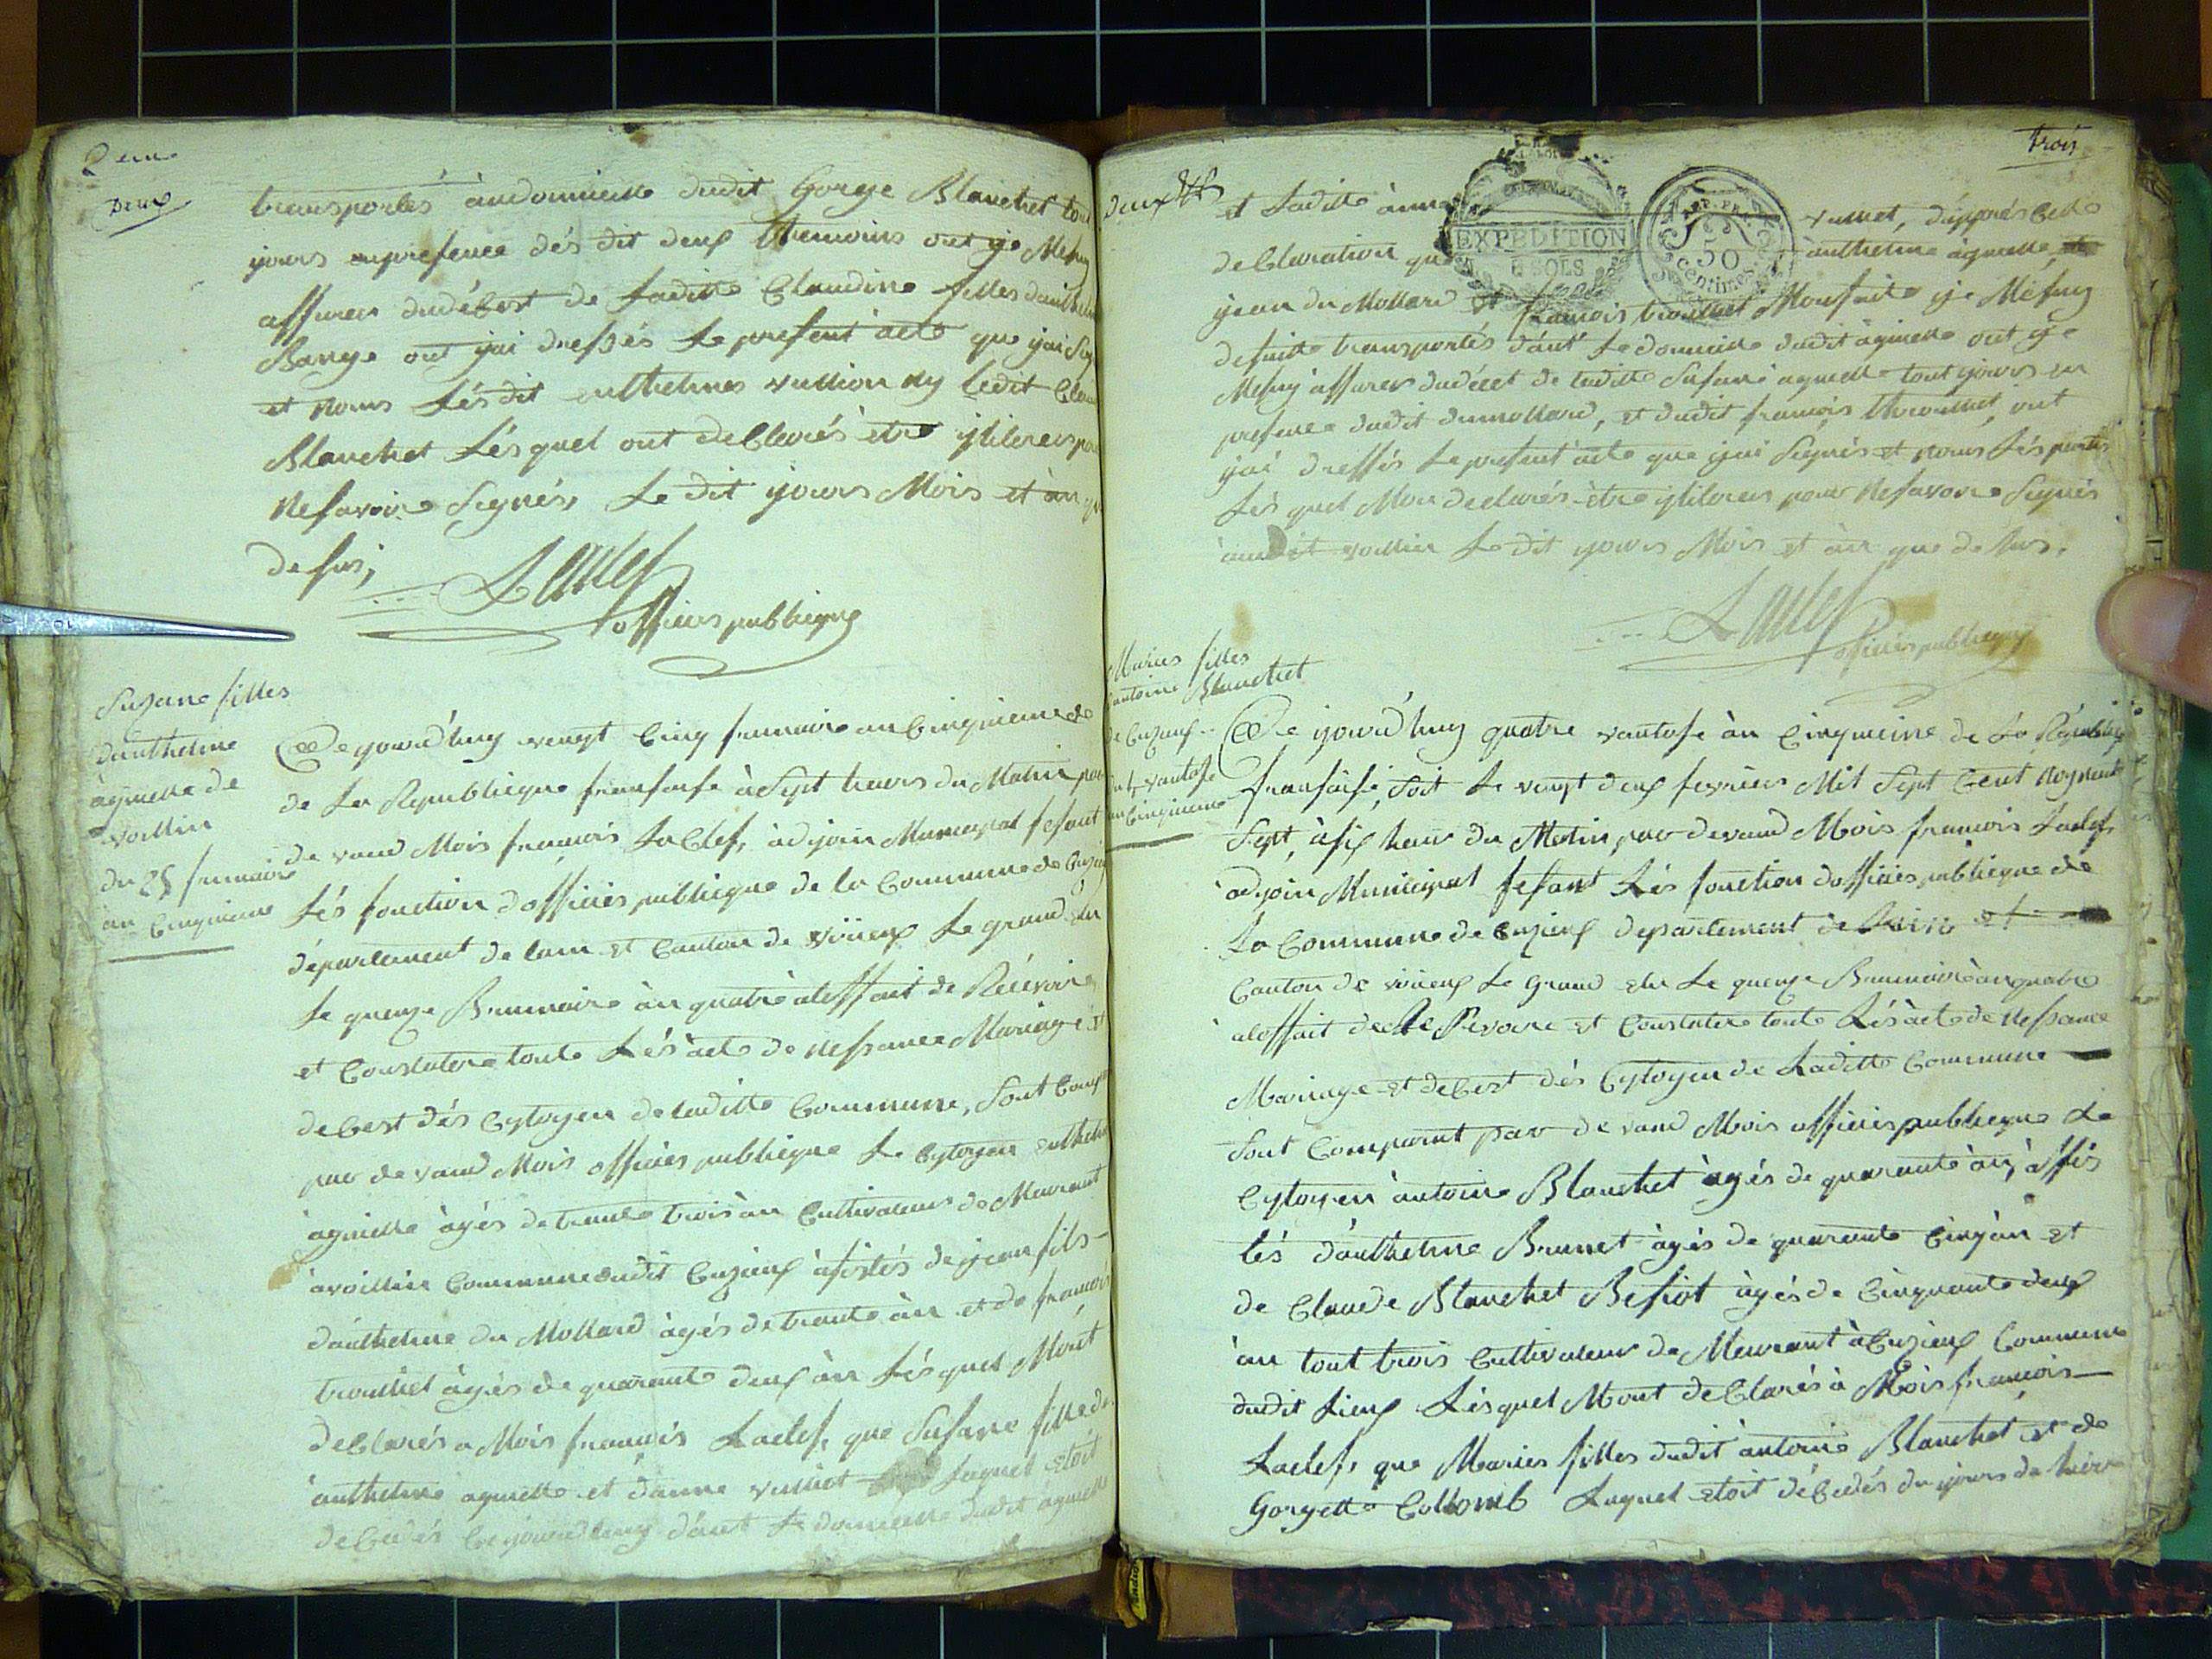 2eme
Deux
transportés audomicille dudit Gorge Blanchet tout
yours enpresence dés dit deux themoins out ye Mesuy
assurer dudébest de laditte Claudine filles danthelme
Barrye out yai dressés Le present acte que yai Sig
et nous Lésdit enthelmes vullion ny ledit Claude
Blanchet Lésquel ont deClarés etre ylileres pour
Nesavoire Segnér Le dit yours Mois et àn que
desus,
Laclef
officies publicque
Susane filles
danthelme
àgnielle de
voillin
du 25 frimaire
an Cinquieme
Ce yourd'huy vengt Cinq frimaire an Cinquieme de
de La Republicque fransaise à Sept heurs du Matin par
de vand Mois francois LaClef, adjoin Municipal fesant
Lés fonction dofficiés publicque de la Commune de Cuzieux
département de lain et Canton de virieux Le grand élu
le quenze Brumaire àn quatre aleffait de Recevoire
et Constatere toute Lés acte de nessance Mariage et
debest dés Cytoyen de laditte Commune, sont Comp
par de vand Mois officies publicque Le Cytoyen anthelme
agnielle àgés detrante trois àn Cultivateur de Meurant
avoillin Commune dudit Cuzieux àsistés de jean fils
danthelme du Mollard àgés detrante àn et de francois
trouillet àgés de quarante deux àn Lésquel Mont
deClarés a Mois francois Laclef, que Susane fille de
anthelme agnielle et danne vulliet laquel etoit
deCedés Ce yourdhuy dant Le domicille dudit agnielle
trois
Deux
et laditte anne vulliet, d'apprés Cette
deClaration que anthelme àgnielle,
yean du Mollard et francois trouillet Monfaite ye Mésuy
desuitte transportés dant Le domicille dudit àgnielle out ye
Mesuy assurer dudécet de laditte Susane agnielle tout yours en
presence dudit dumollard, et dudit francois throuillet, out
yai dressés Lepresent acte que yai Segnés et nous Lés partis
Lésquel Mon declarés être ylileres pour Nesavoire Segnés
audit voillin Le dit yours Mois et àn que desus.
Laclef
officiés publicque
Maries filles
dantoine Blanchet
de Cuzieux
vantose
an Cinquieme
Ce yourd'huy quatre vantose àn Cinquieme de La Républicque
fransaise, Soit le vengt deux fevrier Mil Sept Cent Noynante
Sept, àsix heur du Matin, par devand Mois francois Laclef,
adjoin Municipal fesant Lés fonction dofficiés publicque de
La Commune de Cuzieux departement de et
Canton de virieux Le Grand élu Le quenze Brumaire àn quatre
aleffait de ReCevoire et Constatere toute Lés acte de Nessance
Mariage et debest dés Cytoyen de Laditte Commune
Sont Comparut par devand Mois officiés publicque Le
Cytoyen antoine Blanchet àgés de quarante àn, àssis
tés danthelme Brunet àgés de quarante Cinq àn et
de Claude Blanchet Besiot àgés de Cinquante deux
àn tout trois Cultivateur de Meurant à Cuzieux Commune
dudit Lieux Lésquel Mont deClarés à Mois francois
Laclef, que Maries filles dudit antoine Blanchet et de
Gorgette Collomb Laquel etoit déCedés du yours de hiere
EXPEDITION
6 SOLS
50
Centimes